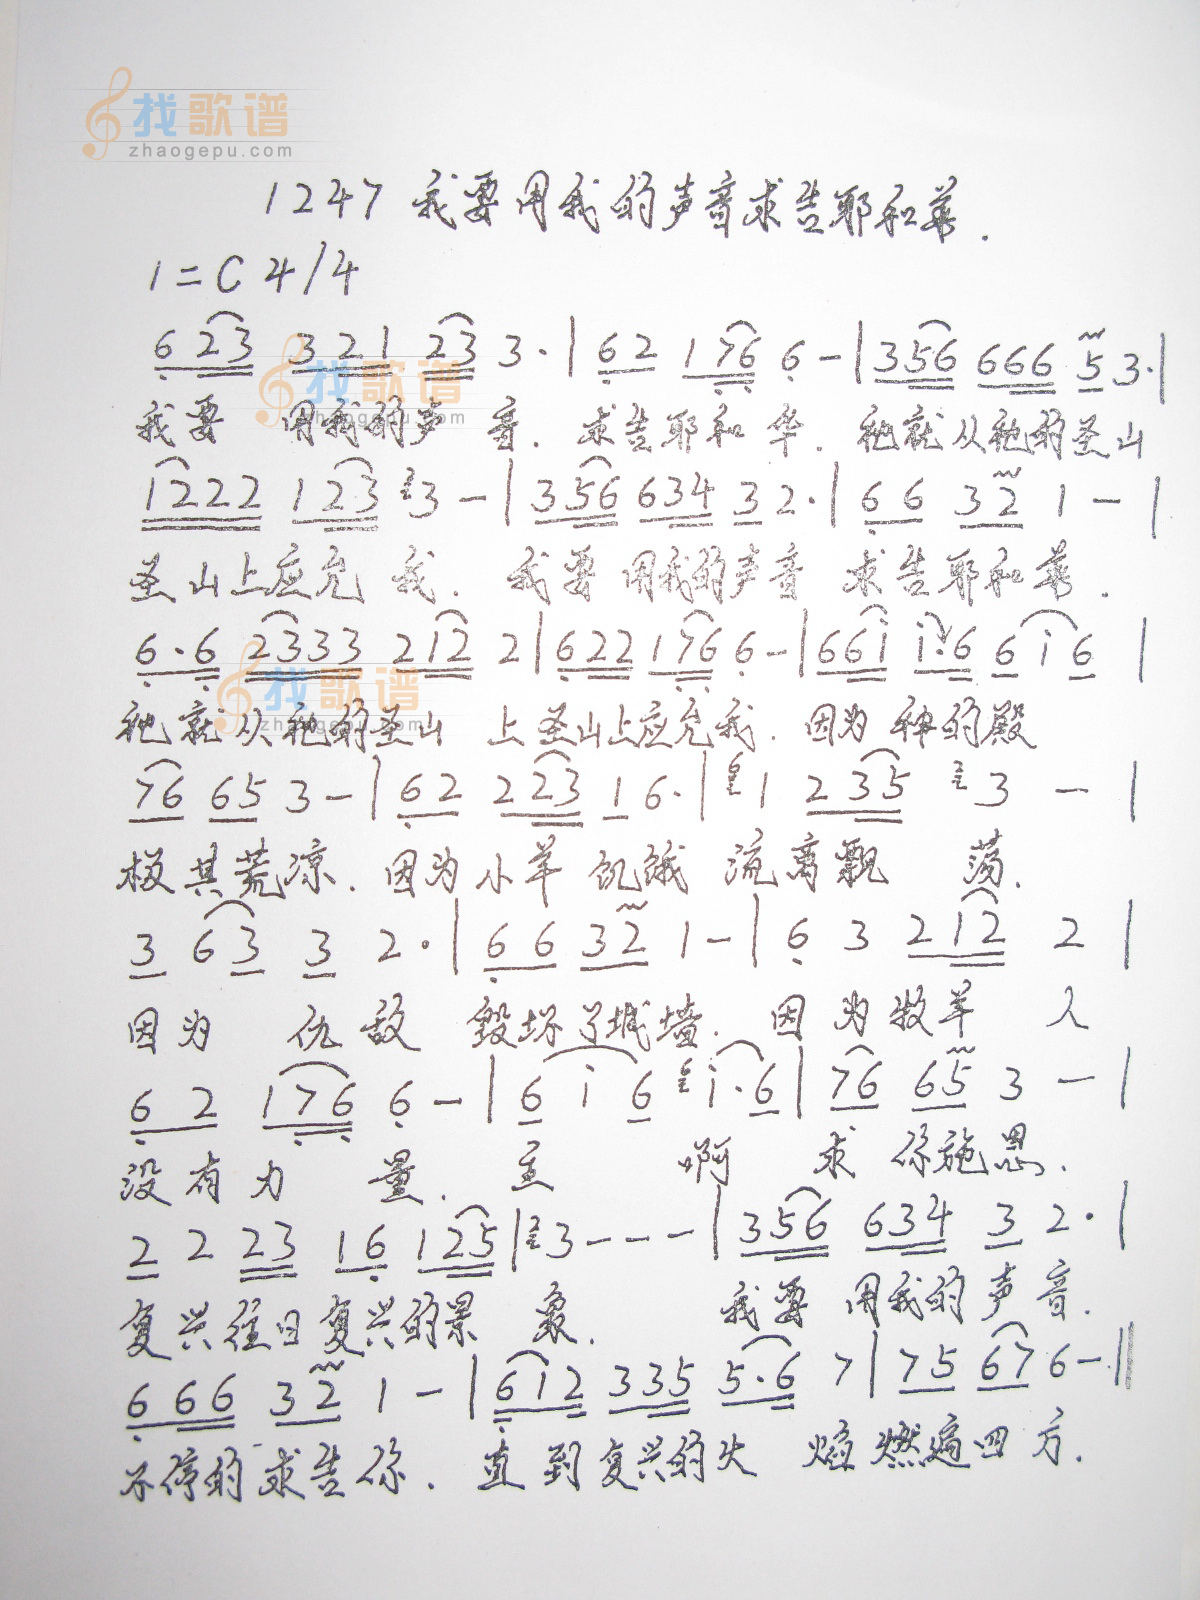 找歌谱
zhaogepu.com
1247 我要用我的声音求告耶和華.
1=C 4/4
6 23 321 23 3·|62 176 6-|356 666 5 3·|
我要 用我的声 音. 求告耶和华. 祂就从祂的圣山
1222 123 3-|356 634 3 2·|66 32 1-|
圣山上应允 我. 我要 用我的声音 求告耶和華.
6·6 2333 212 2|622 176 6-|66i i·6 6 i 6|
祂就从祂的圣山 上圣山上应允我. 因为神的殿
76 65 3-|62 223 1 6·|1 235 3 -|
极其荒凉. 因为小羊饥饿 流离飘 荡.
3 63 3 2·|66 32 1-|6 3 212 2|
因为 仇敌 毁坏了城墙. 因为牧羊 人
6 2 176 6-|6 i 6 i·6|76 65 3-|
没有力 量. 主 啊 求 你施恩.
2 2 23 16 125|3---|356 634 3 2·|
复兴往日复兴的景 象. 我要 用我的声音.
666 32 1-|612 335 5·6 7|75 67 6-‖
不停的求告你. 直到复兴的火 焰燃遍四方.